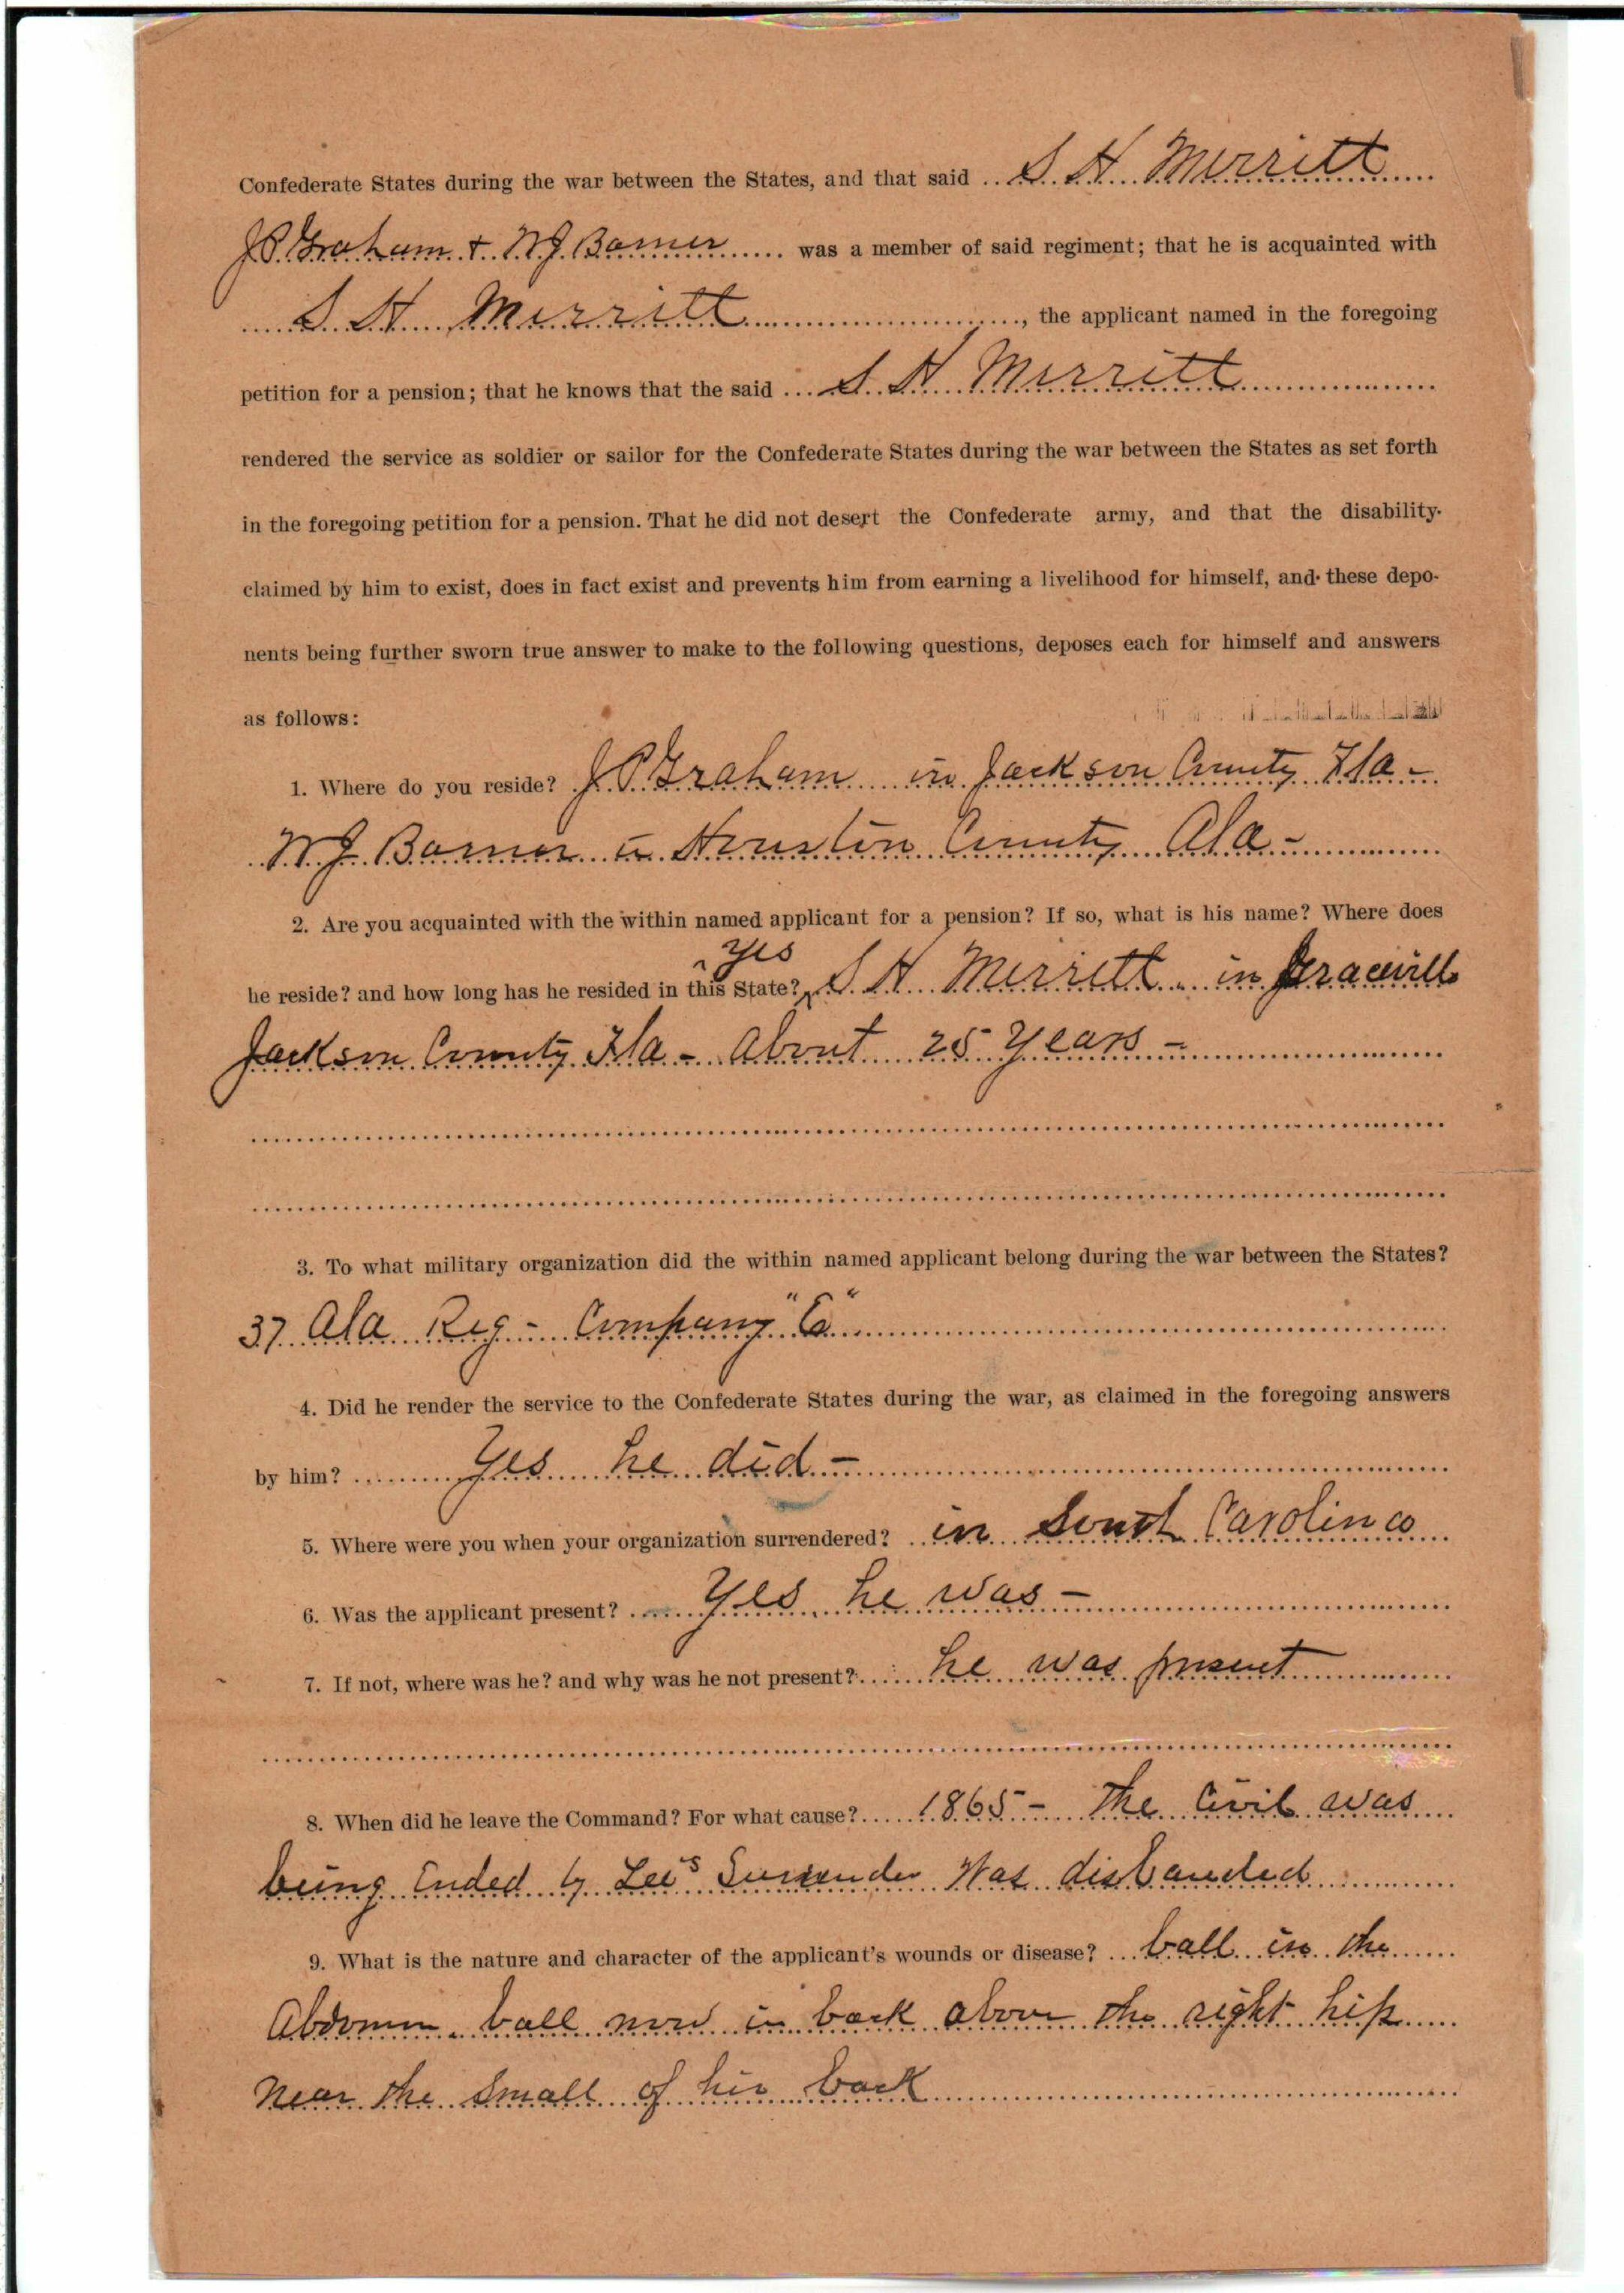 Confederate States during the war between the States, and that said S H Merritt
J P Graham + W J Barner was a member of said regiment; that he is acquainted with
S H Merritt, the applicant named in the foregoing
petition for a pension; that he knows that the said S H Merritt
rendered the service as soldier or sailor for the Confederate States during the war between the States as set forth
in the foregoing petition for a pension. That he did not desert the Confederate army, and that the disability
claimed by him to exist, does in fact exist and prevents him from earning a livelihood for himself, and these depo-
nents being further sworn true answer to make to the following questions, deposes each for himself and answers
as follows:
1. Where do you reside? J P Graham in Jackson County Fla -
W J Barner in Houston County Ala -
2. Are you acquainted with the within named applicant for a pension? If so, what is his name? Where does
yes
he reside? and how long has he resided in this State? S H Merritt - in Graceville
Jackson County Fla - About 25 Years -
3. To what military organization did the within named applicant belong during the war between the States?
37 Ala Reg - Company "E"
4. Did he render the service to the Confederate States during the war, as claimed in the foregoing answers
by him? Yes he did -
5. Where were you when your organization surrendered? in South Carolina
6. Was the applicant present? Yes he was -
7. If not, where was he? and why was he not present? he was present
8. When did he leave the Command? For what cause? 1865 - The Civil was
being Ended by Lee's Surrender Was disbanded
9. What is the nature and character of the applicant's wounds or disease? ball in the
Abdomen. ball now in back above the right hip
Near the Small of his back